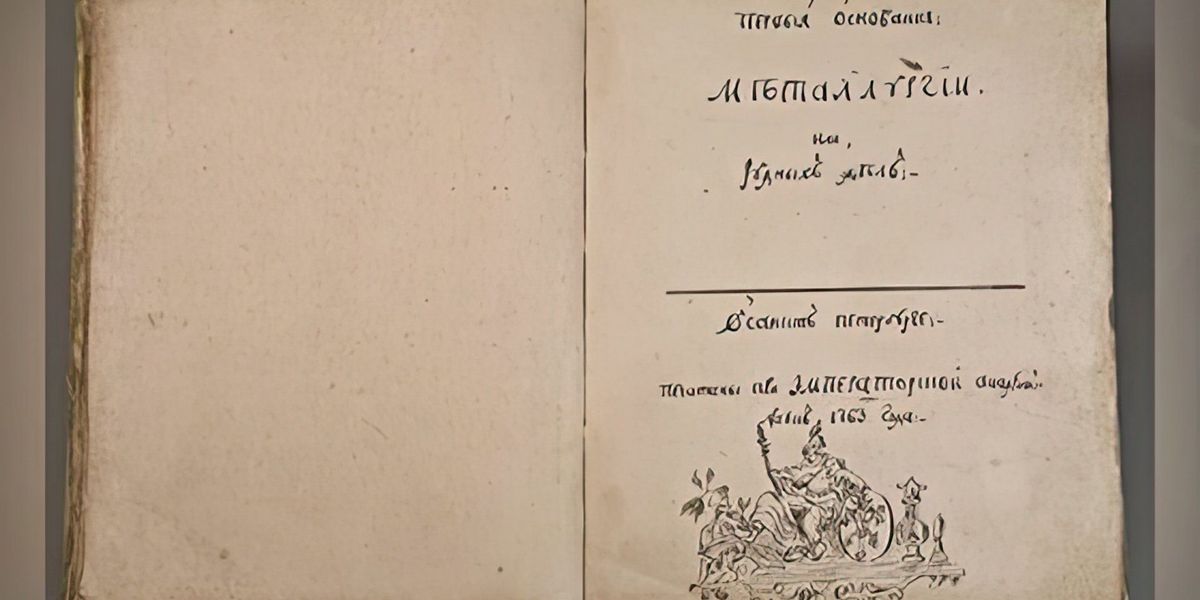 первыя основании:
МЕТАЛЛУРГІИ.
рудныхъ дѣлъ:-
Въ санктъ петербурге:-
печатаны при ИМПЕРАТОРСКОЙ
1763 года:-